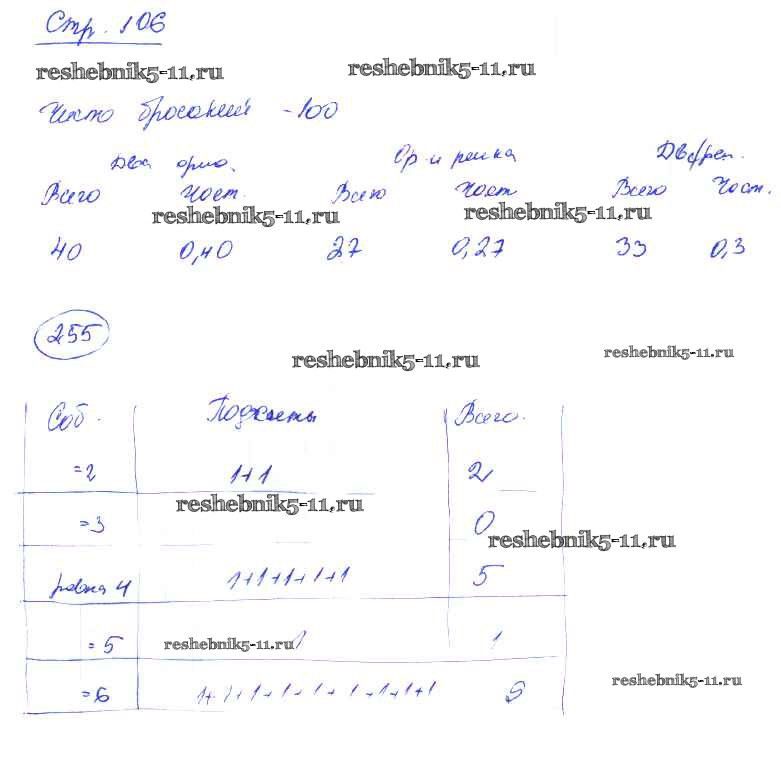 Стр. 106
reshebnik5-11.ru reshebnik5-11.ru
Число бросаний -100
Два орла. Ор и решка Две реш.
Всего Част. Всего Част Всего Част.
reshebnik5-11.ru reshebnik5-11.ru
40 0,40 27 0,27 33 0,3
255
reshebnik5-11.ru reshebnik5-11.ru
Соб. Подсчеты Всего.
=2 1+1 2
reshebnik5-11.ru
=3 0
reshebnik5-11.ru
равна 4 1+1+1+1+1 5
=5 reshebnik5-11.ru 1 1
reshebnik5-11.ru
=6 1+1+1+1+1+1+1+1+1 9